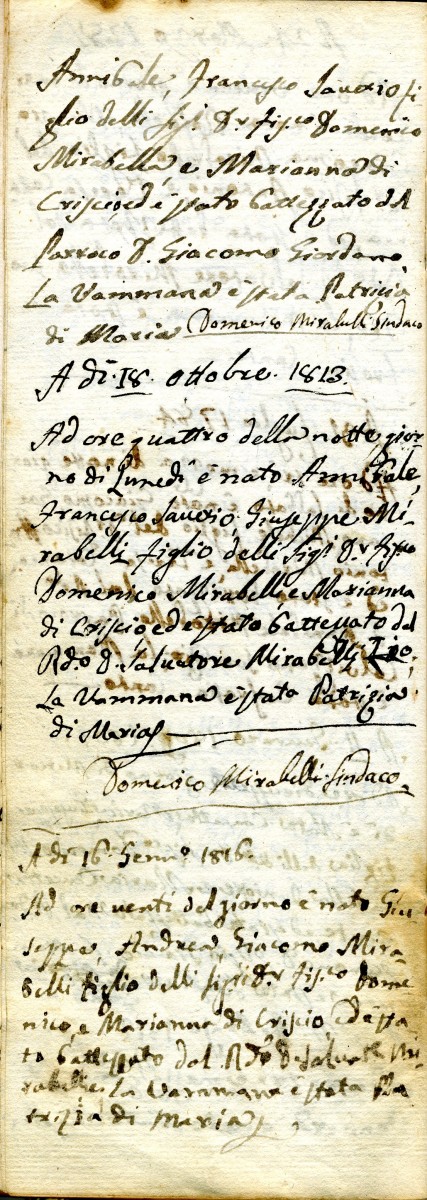 Annibale, Francesco Saverio fi
glio delli Sig.i D.r fis.co Domenico
Mirabelli, e Marianna di
Criscio, ed è stato battezzato dal
Parroco D. Giacomo Giordano,
La Vammana è stata Patrizia
di Maria Domenico Mirabelli Sindaco
A dì 18. ottobre. 1813.
Ad ore quattro della notte gior-
no di Lunedì è nato Annibale,
Francesco Saverio, Giuseppe Mi-
rabelli figlio delli Sig.i D.r fis.co
Domenico Mirabelli, e Marianna
di Criscio, ed è stato battezzato dal
R.do D. Salvatore Mirabelli Zio.
La Vammana è stata Patrizia
di Maria
Domenico Mirabelli Sindaco.
A dì 16. Genn.o 1816.
Ad ore venti del giorno è nato Giu
seppe, Andrea, Giacomo Mira
belli figlio delli Sig.i D.r fis.co Dome
nico, e Marianna di Criscio, ed è sta
to battezzato dal R.do D. Salvat.e Mi
rabelli. La Vammana è stata Pa
trizia di Maria